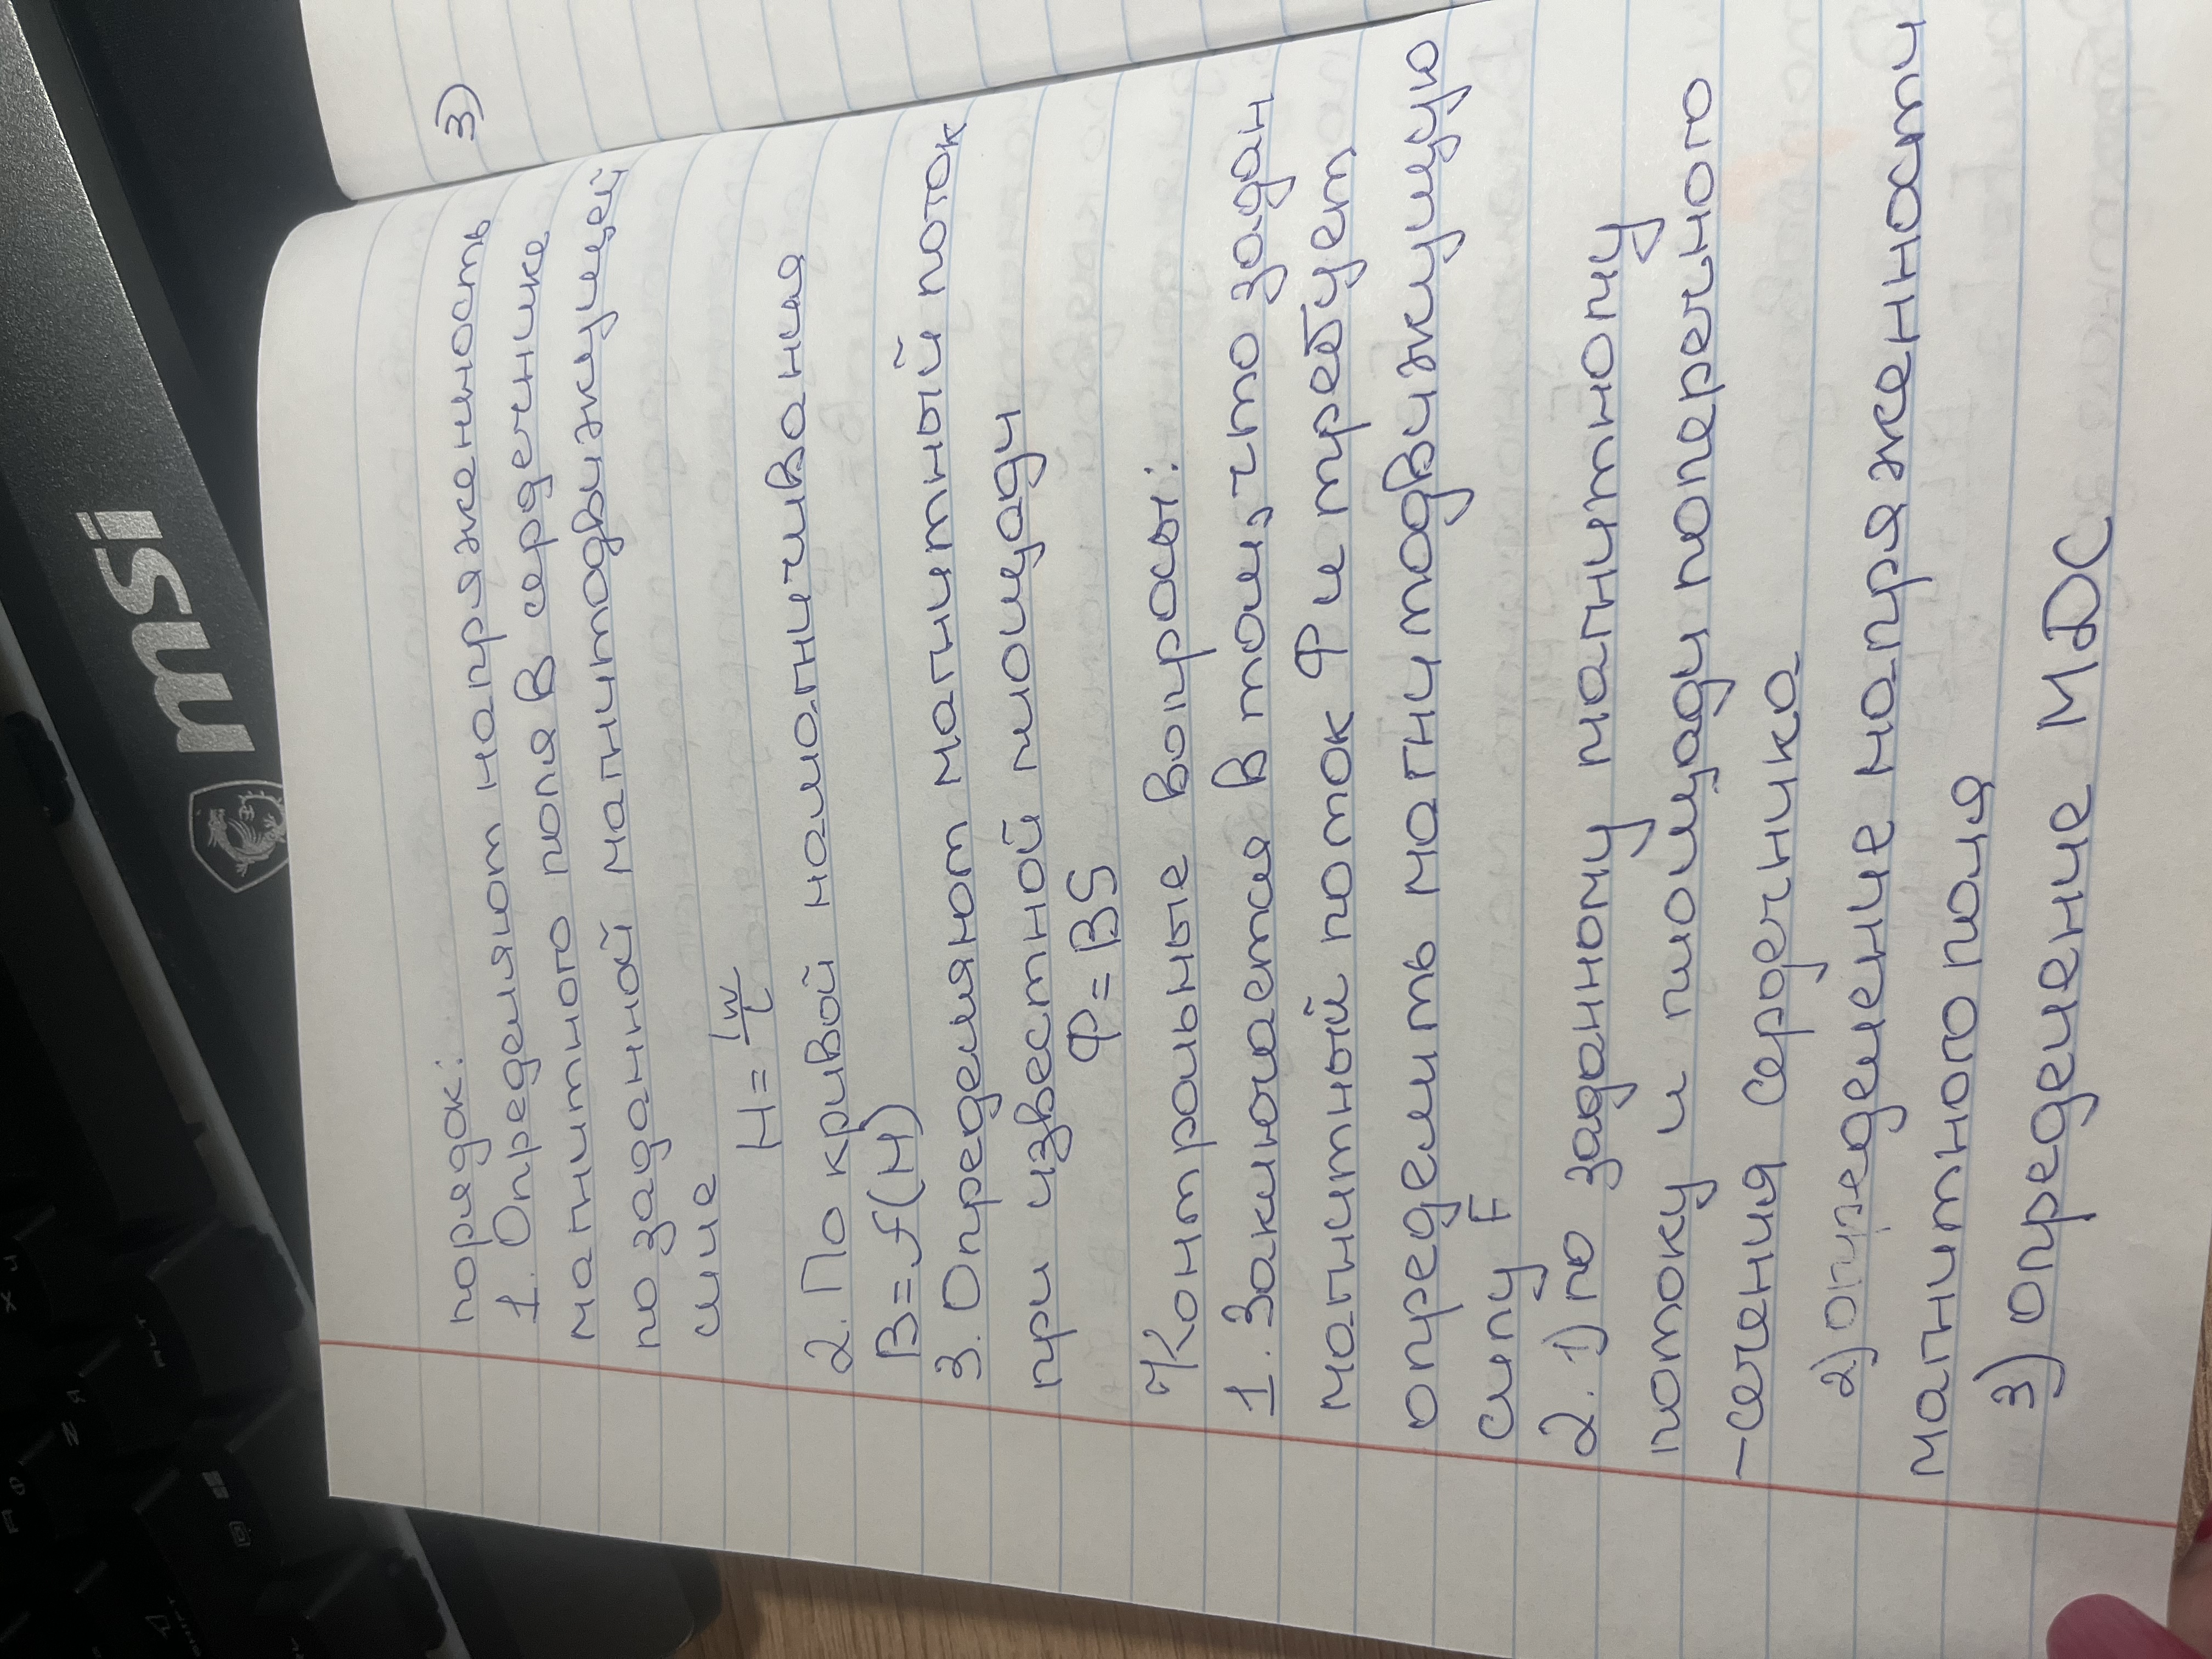 порядок:
1. Определяют напряженность
магнитного поля в сердечнике
по заданной магнитодвижущей
силе
H = Iw/L
2. По кривой намагничивания
B = f(H)
3. Определяют магнитный поток
при известной площади
Ф = BS
Контрольные вопросы:
1. Заключается в том, что задан
магнитный поток Ф и требует
определить магнитодвижущую
силу F
2. 1) по заданному магнитному
потоку и площади поперечного
-сечения сердечника
2) определение напряженности
магнитного поля
3) определение МДС
3)
msi